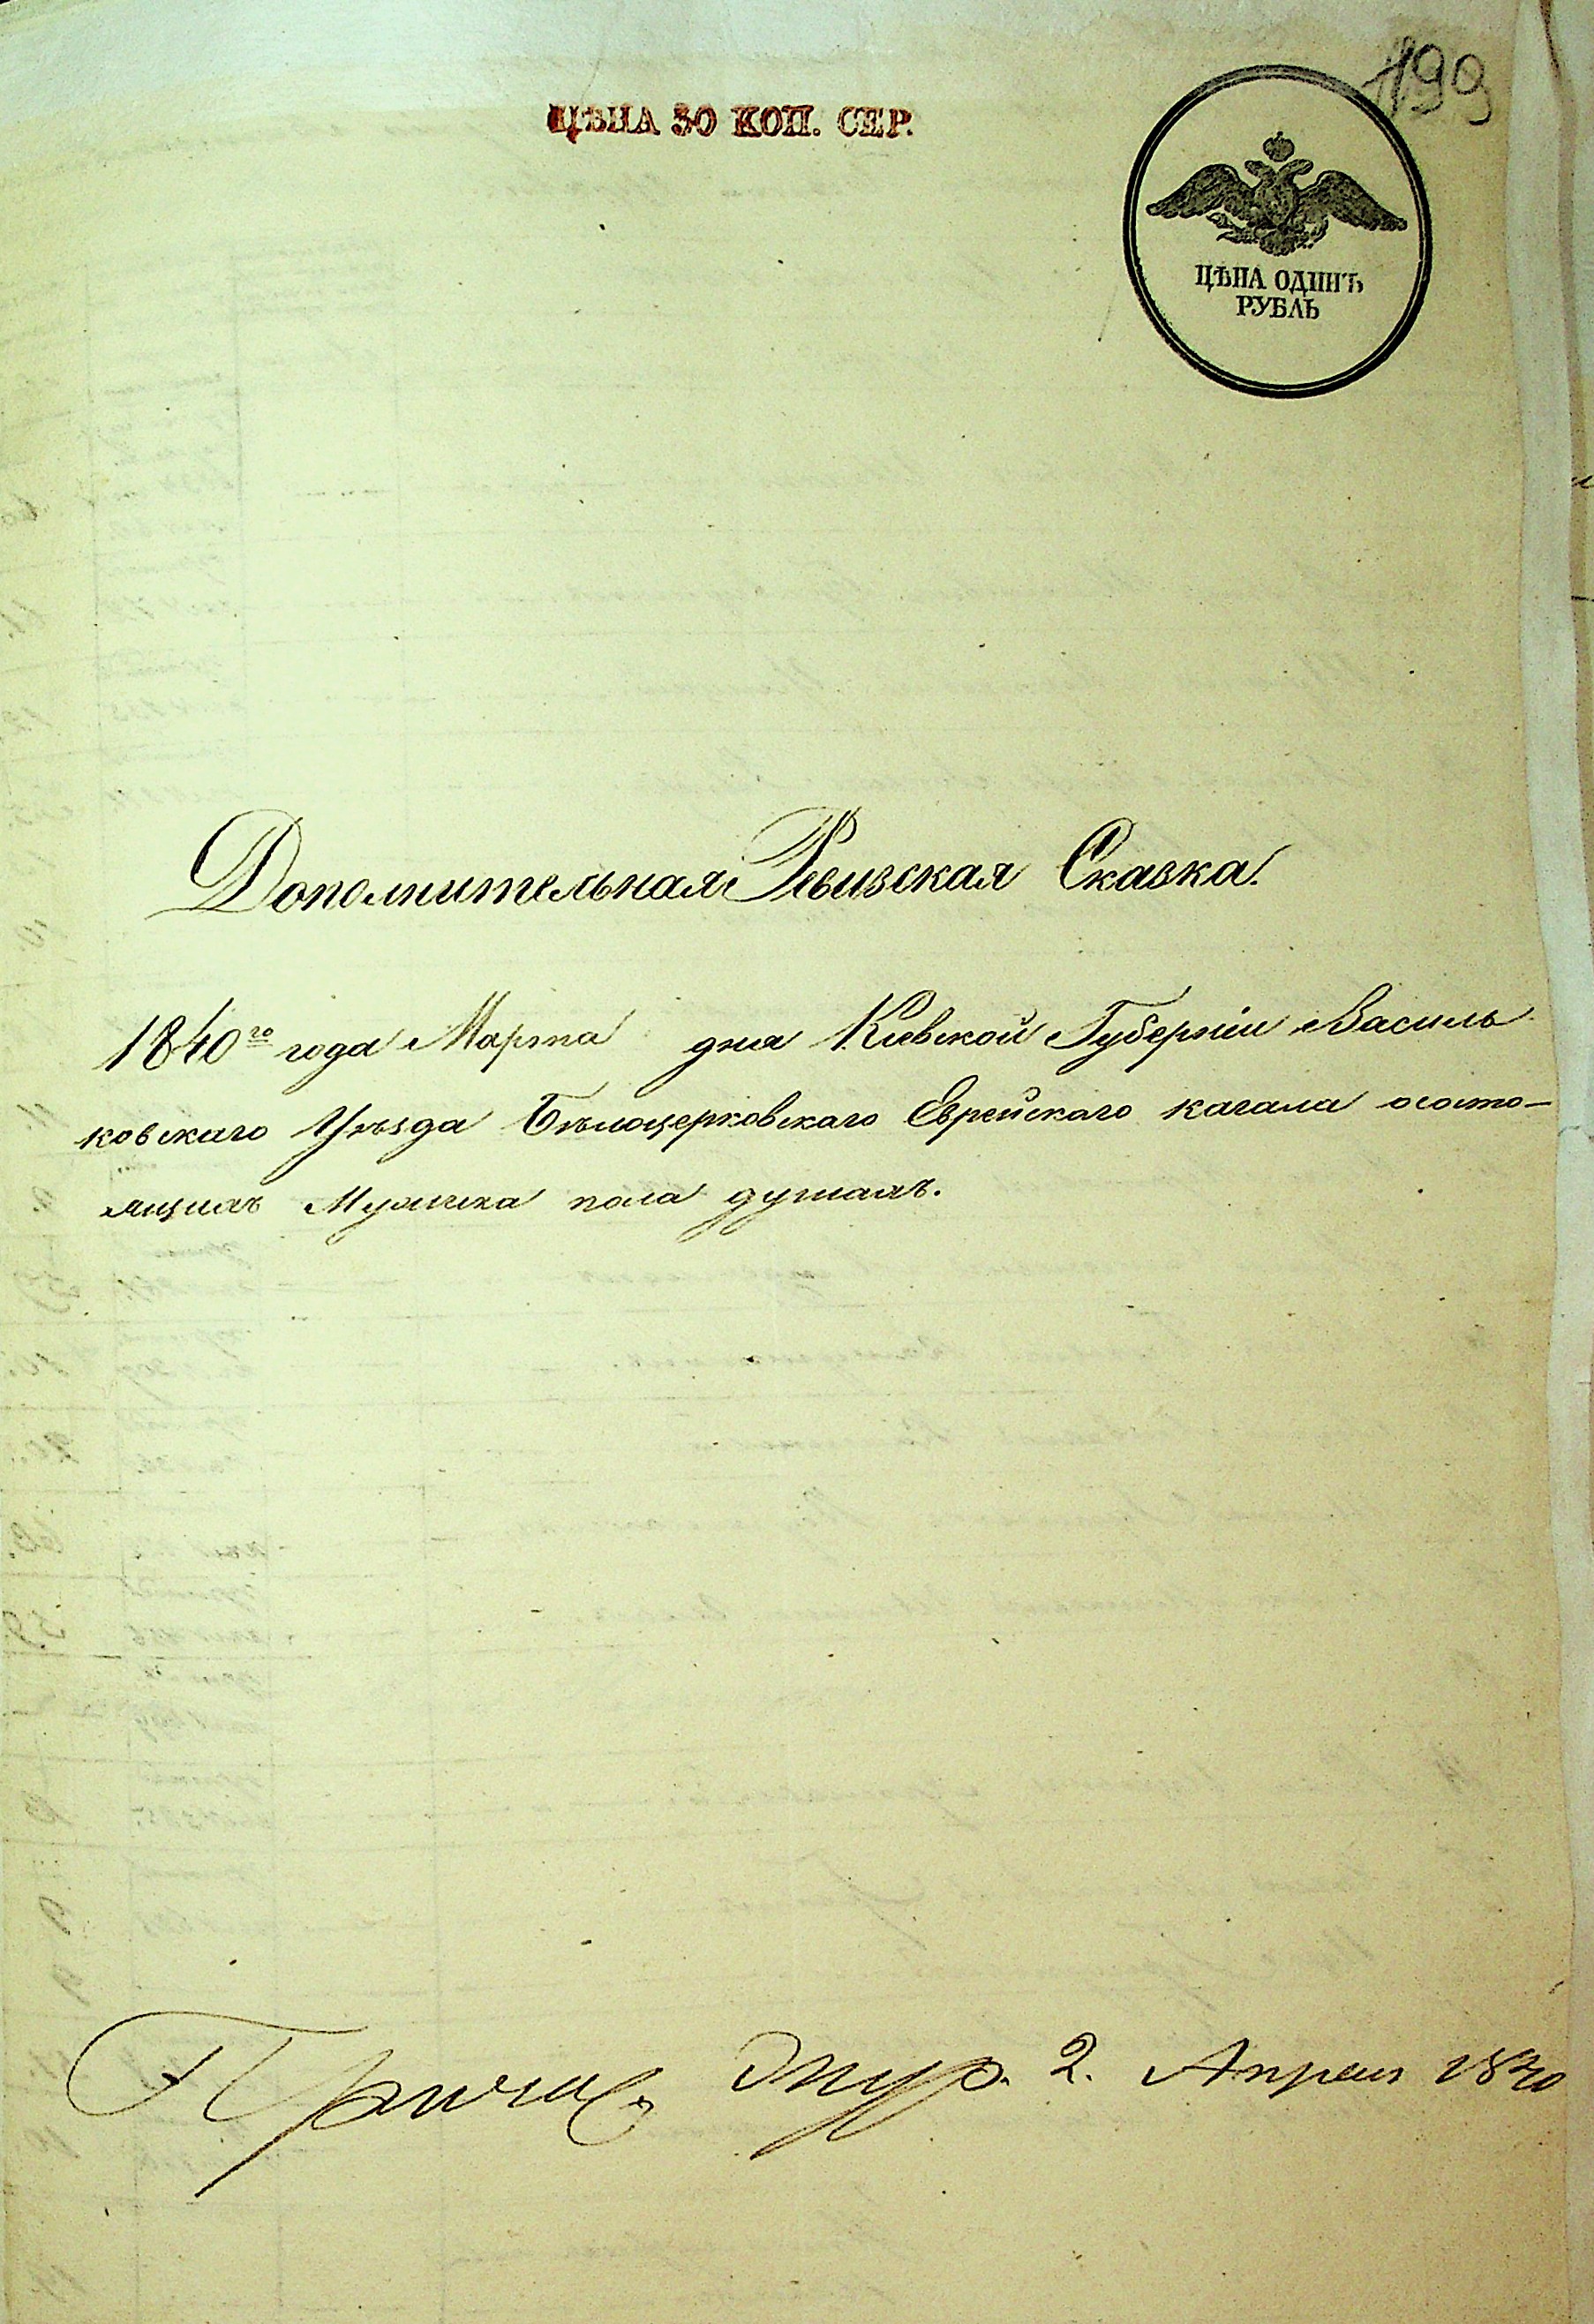 199
ЦѢНА 30 КОП. СЕР.
ЦѢНА ОДИНЪ
РУБЛЬ
Дополнительная Ревизская Сказка.
1840го года Марта дня Киевской Губерніи Василь
ковскаго Уѣзда Бѣлоцерковскаго Еврейскаго кагала ососто-
ящихъ Мужеска пола душахъ.
2. Апреля 1840